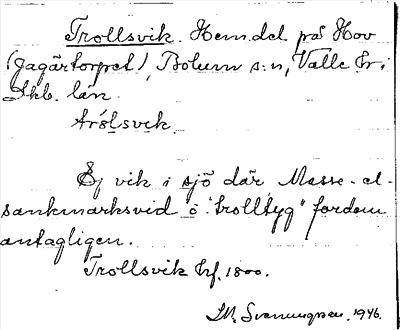 Trollsvik. Hem.del på Hov
(Jagärtorpet), Bolum s:n, Valle hr,
Skb. län.
trólsvik.
Ej vik i sjö där, Masse- el.
sankmarksvid o. "trolltyg" fordom
antagligen.
Trollsvik hf. 1800.
Svenungsson, 1946.